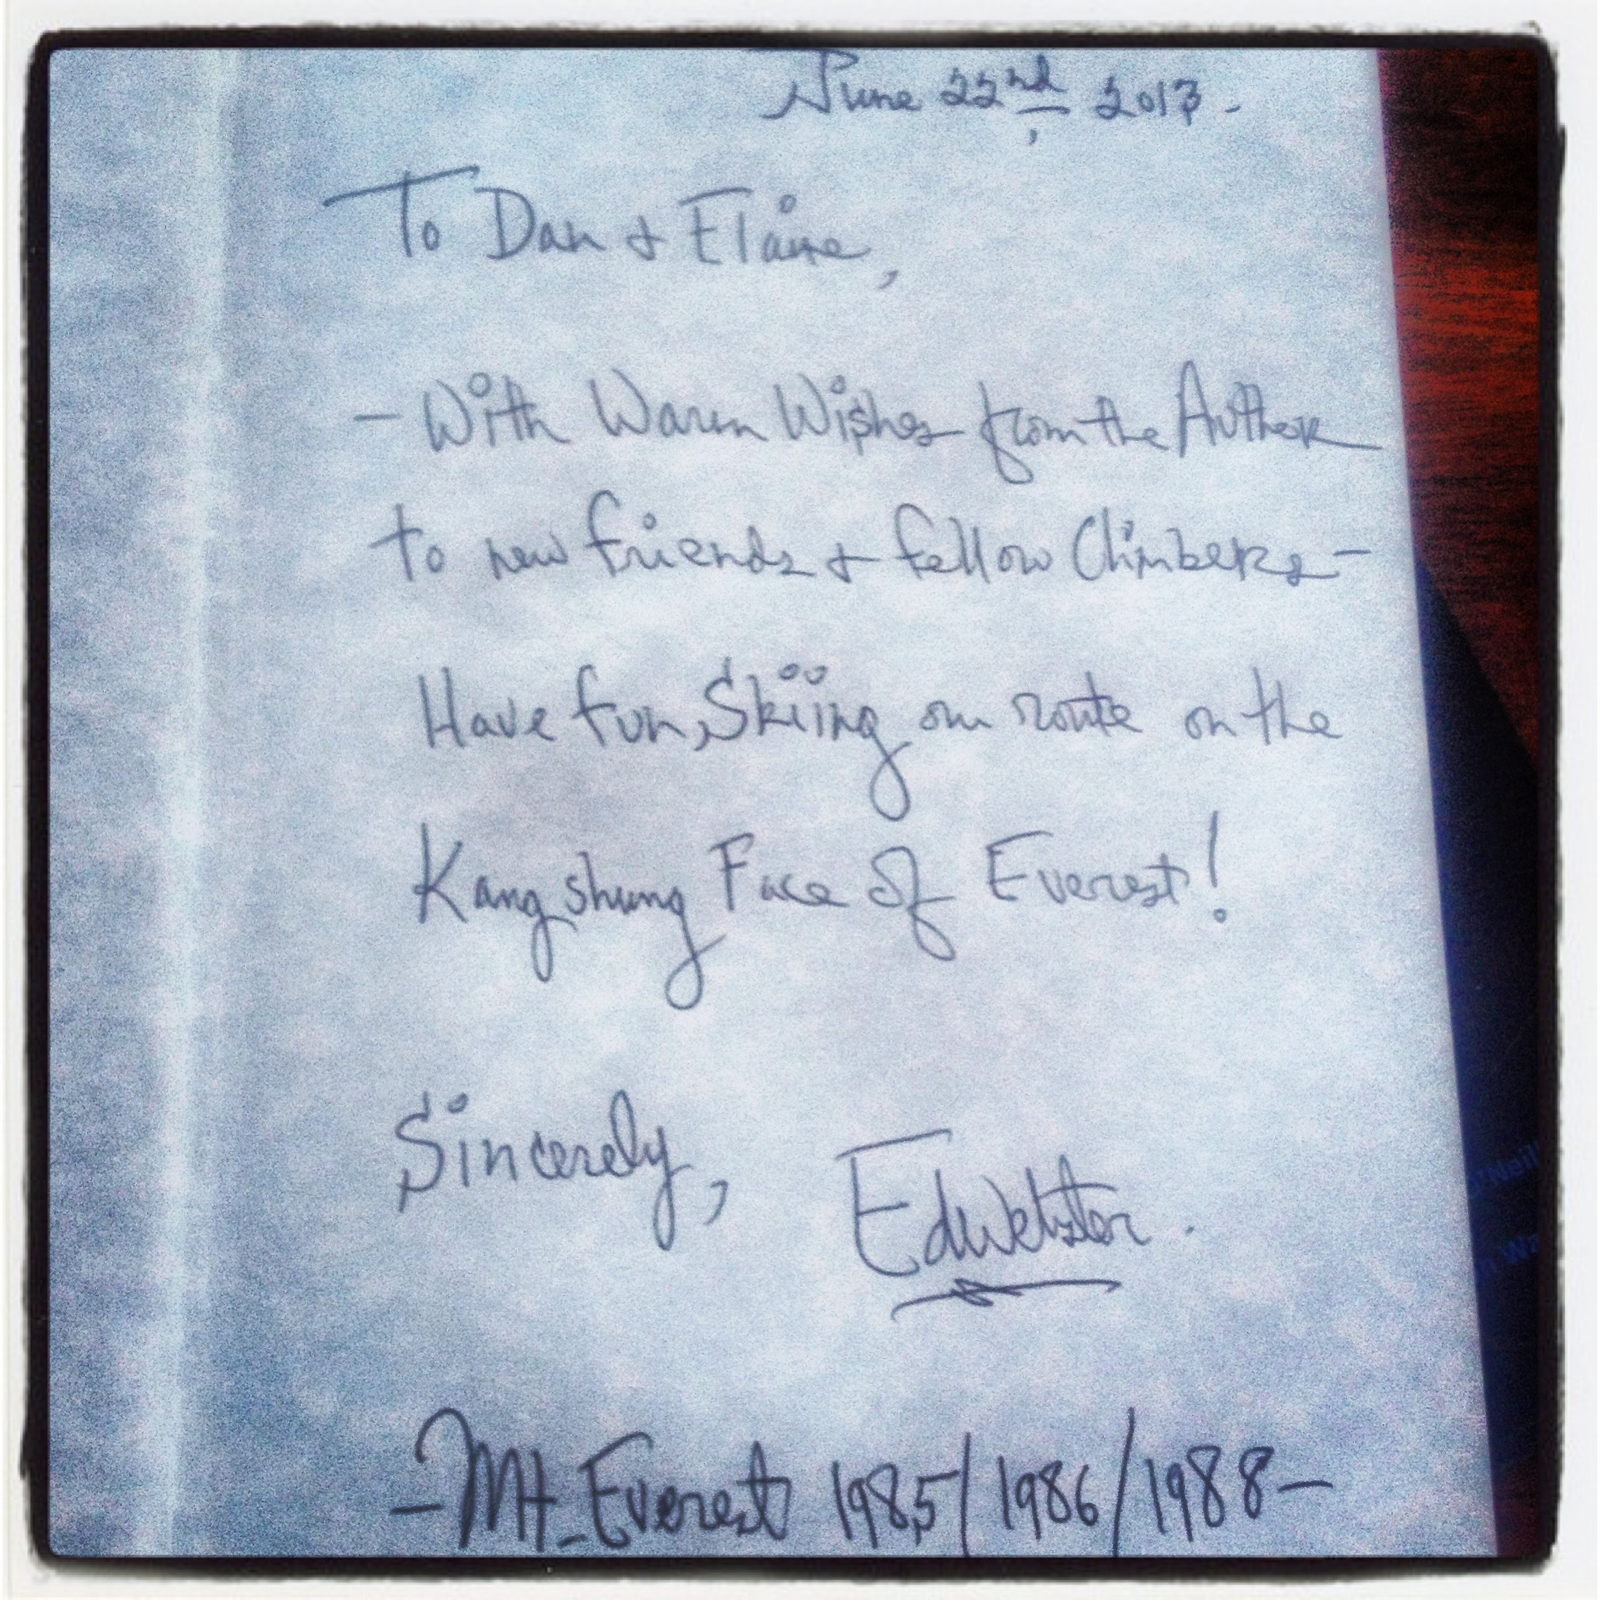 June 22nd, 2013.
To Dan & Elaine,
- With Warm Wishes from the Author
to new friends & fellow Climbers -
Have fun, Skiing our route on the
Kangshung Face of Everest!
Sincerely, Ed Webster.
- Mt. Everest 1985/1986/1988 -
O'Neil